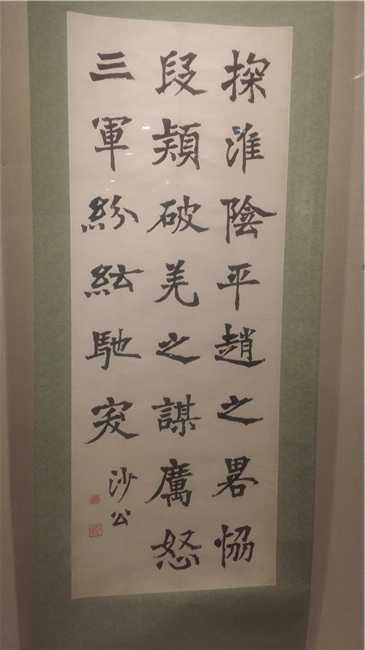 探淮陰平趙之畧恊
段熲破羌之謀厲怒
三軍紛紜馳突
沙公